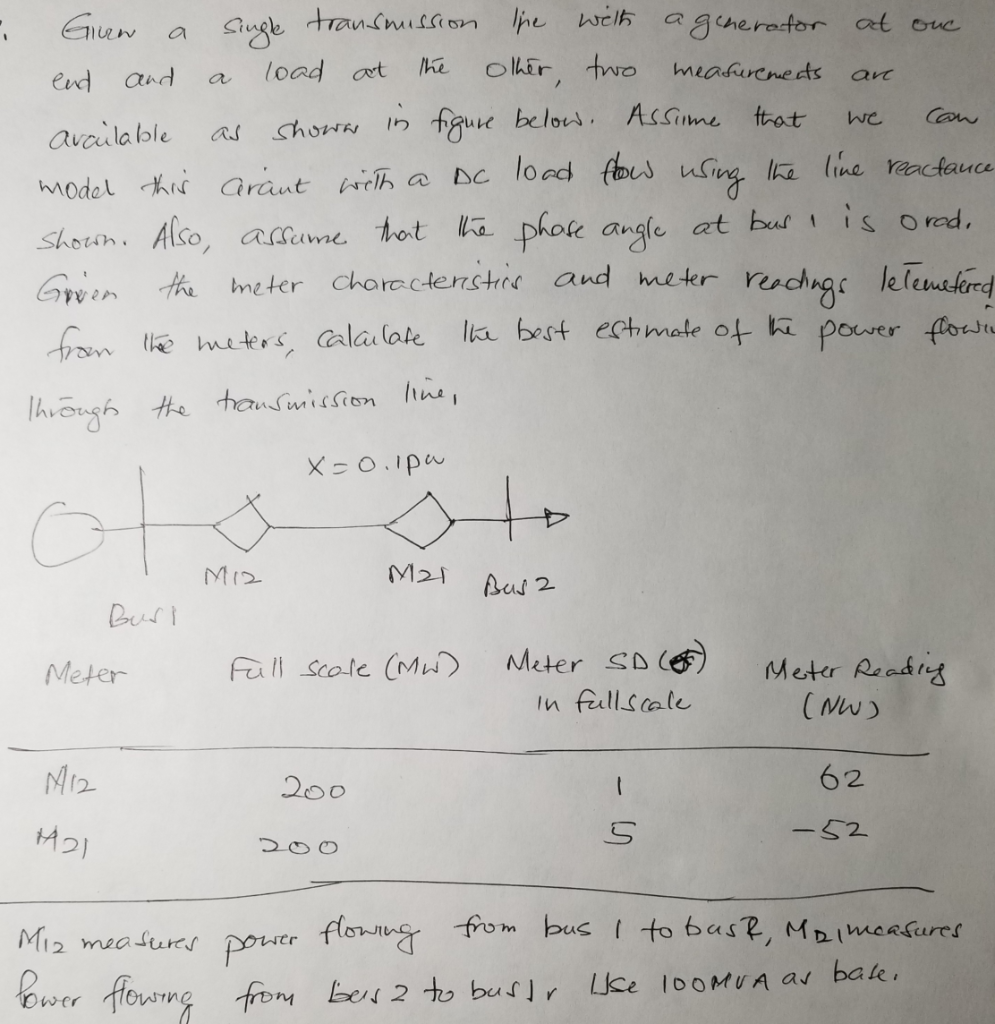 Given a single transmission line with a generator at one
end and a load at the other, two measurements are
available as shown in figure below. Assume that we can
model this circuit with a DC load flow using the line reactance
shown. Also, assume that the phase angle at bus 1 is 0 rad.
Given the meter characteristics and meter readings telemetered
from the meters, calculate the best estimate of the power flowin
through the transmission line,
X = 0.1pu
M12 M21 Bus 2
Bus 1
Meter Full scale (MW) Meter SD (σ) Meter Reading
in fullscale (MW)
M12 200 1 62
M21 200 5 -52
M12 measures power flowing from bus 1 to bus 2, M21 measures
Power flowing from bus 2 to bus 1. Use 100MVA as base.